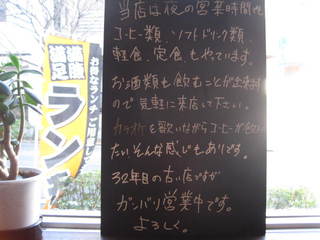 当店は夜の営業時間も
コーヒー類、ソフトドリンク類、
軽食、定食、もやっています。
お酒類も飲むことが出来ます
ので気軽に来店して下さい。
カラオケを歌いながらコーヒーが飲み
たいそんな感じもありです。
32年目の古い店ですが
ガンバリ営業中です。
よろしく。
満腹
満足
お得なランチご用意して
ランチ